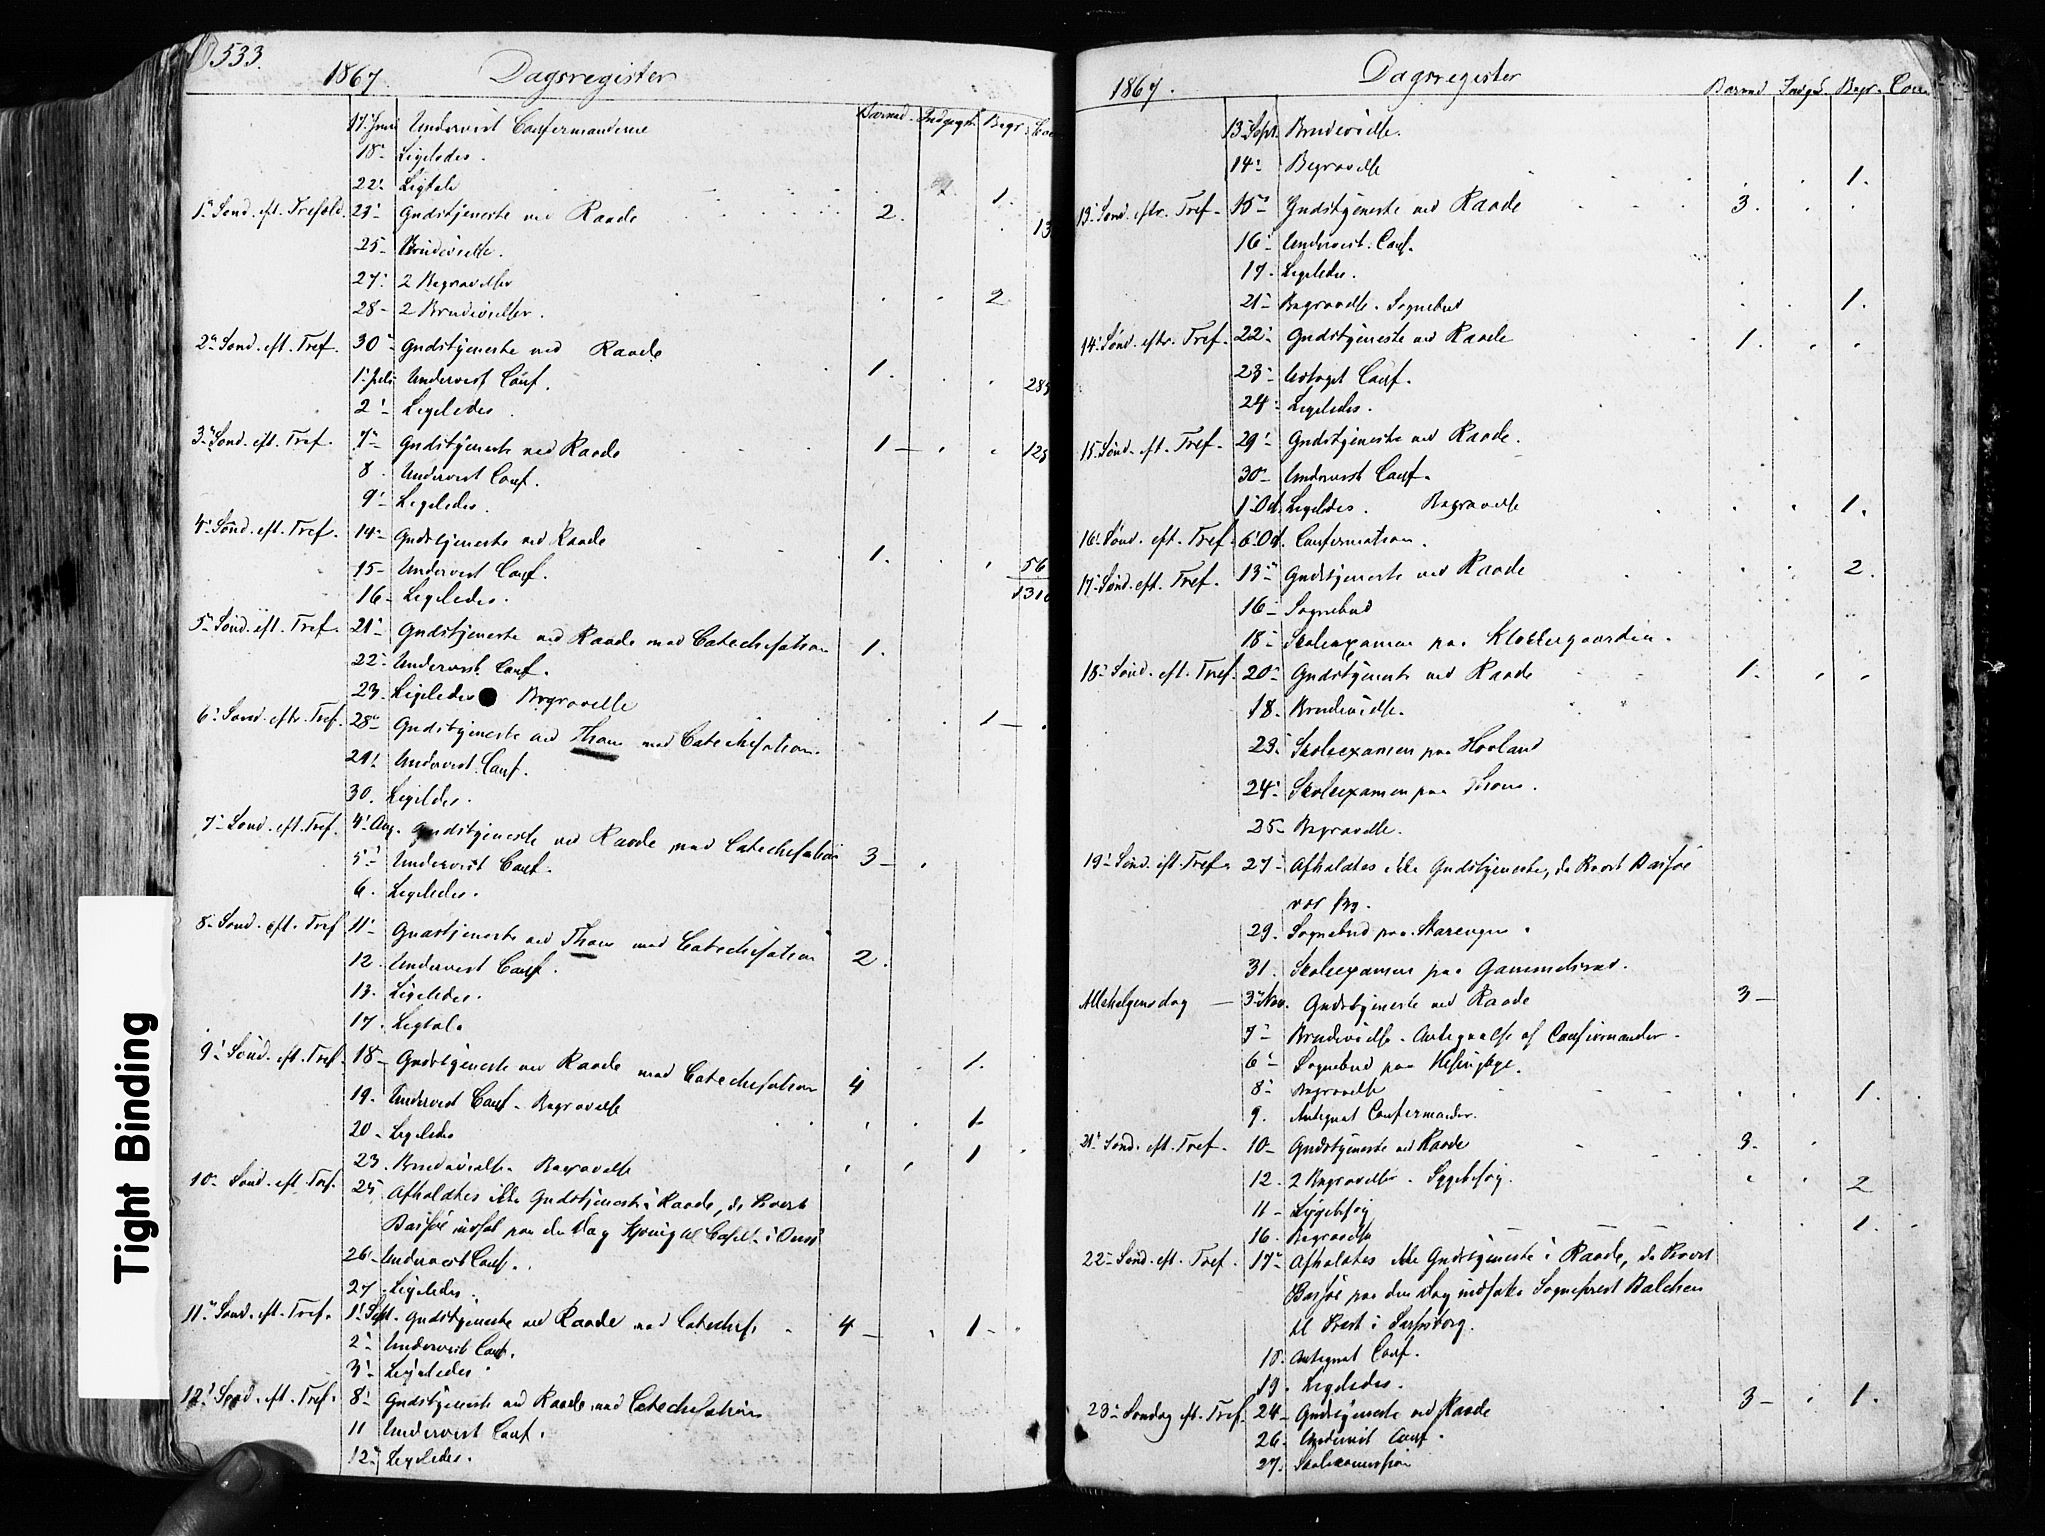 533.
1867. Dagsregister
Barned. Indgegn. Begr.
17 Juni Undervist Confirmanderne
18 Ligeledes.
22 Ligtale 1.
1 Sønd. eft. Trefold. 23 Gudstjeneste ved Raade 2. 13
25 Brudevielse.
27 2 Begravelser 2
28 2 Brudevielser.
2 Sønd. eft. Tref. 30 Gudstjeneste ved Raade 1.
1 Juli Undervist Conf.
2 Ligeledes
3 Sønd. eft. Tref. 7 Gudstjeneste ved Raade 1
8 Undervist Conf.
9 Ligeledes.
4 Sønd. eft. Tref. 14 Gudstjeneste ved Raade 1. 56
15 Undervist Conf.
16 Ligeledes.
5 Sønd. eft. Tref. 21 Gudstjeneste ved Raade med Catechisation 1.
22 Undervist Conf.
23 Ligeledes Begravelse 1
6 Sønd. eftr. Tref. 28 Gudstjeneste ved Thom med Catechisation.
29 Undervist Conf.
30. Ligeledes.
7 Sønd. eft. Tref. 4 Aug. Gudstjeneste ved Raade med Catechisation 3
5 Undervist Conf.
6. Ligeledes.
8 Sønd. eft. Tref 11 Gudstjeneste ved Thom med Catechisation 2.
12. Undervist Conf.
13. Ligeledes.
17. Ligtale
9 Sønd. eft. Tref. 18 Gudstjeneste ved Raade med Catechisation 4 1.
19. Undervist Conf. Begravelse 1
20 Ligeledes
23. Brudevielse. Begravelse 1
10 Sønd. eft. Tref. 25 Afholdtes ikke Gudstjeneste i Raade, da Provst
Bassøe indsat paa den Dag til Capel. i
26 Undervist Conf.
27 Ligeledes.
11 Sønd. eft. Tref. 1 Sept. Gudstjeneste ved Raade med Catechis. 4 1
2 Undervist Conf.
3 Ligeledes.
12 Sønd. eft. Tref. 8 Gudstjeneste ved Raade med Catechisation
11 Undervist Conf.
12 Ligeledes.
1867. Dagsregister
Barned Indgd. Begr. Com.
13 Sept. Brudevielse.
14 Begravelse 1.
13 Sønd. eftr. Tref. 15 Gudstjeneste ved Raade 3.
16 Undervist. Conf.
17. Ligeledes.
21 Begravelse. Sognebud 1.
14 Sønd. eftr. Tref. 22 Gudstjeneste ved Raade 1.
23 Conf.
24 Ligeledes.
15 Sønd. eft. Tref. 29 Gudstjeneste ved Raade.
30 Undervist Conf.
1 Oct. Ligeledes. Begravelse 1.
16 Sønd. eft. Tref. 6 Oct. Confirmation.
17 Sønd. eft. Tref. 13 Gudstjeneste ved Raade 2.
16 Sognebud
18 Skoleexamen paa Klostergaarden.
18 Sønd. eft. Tref. 20 Gudstjeneste ved Raade 1.
18. Brudevielse.
23. Skoleexamen paa Hovland
24 Skoleexamen paa Thom.
25 Begravelse.
19 Sønd. eft. Tref. 27 Afholdtes ikke Gudstjeneste, da Provst Bassøe
var syg.
29. Sognebud paa
31. Skoleexamen paa Gammelsrød.
Allehelgensdag 3 Nov. Gudstjeneste ved Raade 3
7 Brudevielse. Antegnelse af Confirmander.
6 Sognebud paa
8 Begravelse 1.
9. Antegnet Confirmander.
21 Sønd. eft. Tref. 10 Gudstjeneste ved Raade 3.
12. 2 Begravelser. Sygebesøg. 2
11 Sygebesøg
16. Begravelse 1.
22 Sønd. eft. Tref. 17 Afholdtes ikke Gudstjeneste i Raade, da Provst
Bassøe paa den Dag indsatte Sognepræst Balchen
til Præst i Sarpsborg.
18. Antegnet Conf.
19. Ligeledes.
23 Søndag eft. Tref. 24 Gudstjeneste ved Raade 3 1.
26. Undervist Conf.
27. Skolecommission
Tight Binding